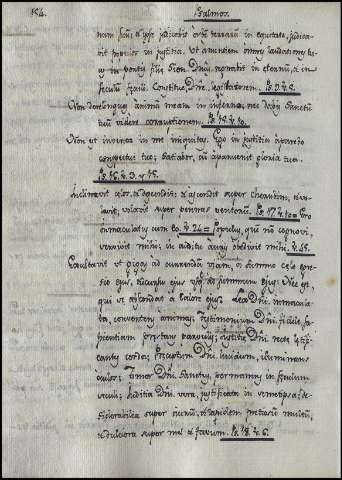 154. Psalmos.
num suū; et ipse judicabit orbē terrarū in equitate, judica-
bit populos in justitia. Ut annuntiem omnes laudationes tu-
as in portis filiæ Sion. Dnūs regnabit in eternū, et in
seculū seculi. Constitue Dne, legislatorem. Ps. 9. v. 8.
Non derelinques animā meam in inferno, nec dabis Sanctū
tuū videre corruptionem. Ps. 15. v. 10.
Non est inventa in me iniquitas. Ego in justitia apparebo
conspectui tuo; satiabor, cū apparuerit gloria tua.
Ps. 16. v. 3. y 15.
Inclinavit celos, et descendit; et ascendit super cherubim, et vo-
lavit, volavit super pennas ventorū. Ps. 17. v. 10 = Pro
inmaculatus cum eo. v. 24 = Populus, quē nō cognovi,
servivit mihi; in auditu auris obedivit mihi. v. 45.
Exultavit ut gigas ad currendā viam, a summo celo egre-
sio ejus, et occursus ejus usq. ad summum ejus: Nec est,
qui se abscondat a calore ejus. Lex Dni. inmacula-
ta, convertens animas; testimonium Dni. fidele, sa-
pientiam prestans parvulis; justitiæ Dni. recte letifi-
cantes corda; preceptum Dni. lucidum, illuminans
oculos; timor Dni. Sanctus, permanens in seculum
seculi; judicia Dni. vera, justificata in semetipsa; de-
siderabilia super aurū, et lapidem pretiosū multū,
et dulciora super mel et favum. Ps. 18. v. 6.